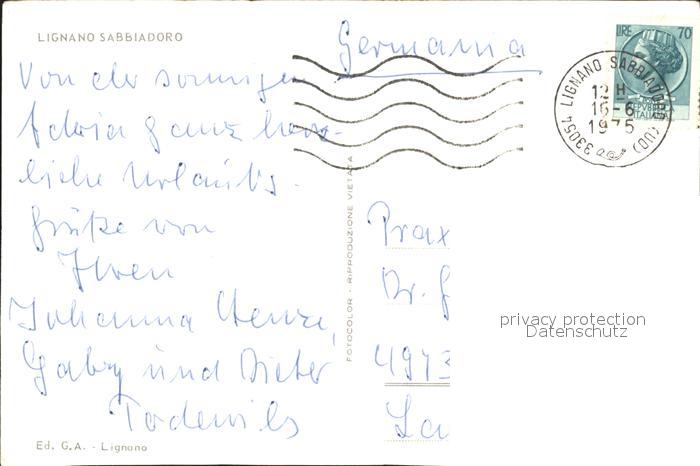 LIGNANO SABBIADORO
Germania
LIRE 70
REPUBBLICA
ITALIANA
33054 LIGNANO SABBIADORO (UD)
12 H
16-6
1975
Von der sonnigen
Adria ganz herz-
liche Urlaubs-
grüße von
Ihren
Johanna Henze,
Gaby und Dieter
FOTOCOLOR - RIPRODUZIONE VIETATA
Prax
Dr. G
4973
privacy protection
Datenschutz
Ed. G.A. - Lignano